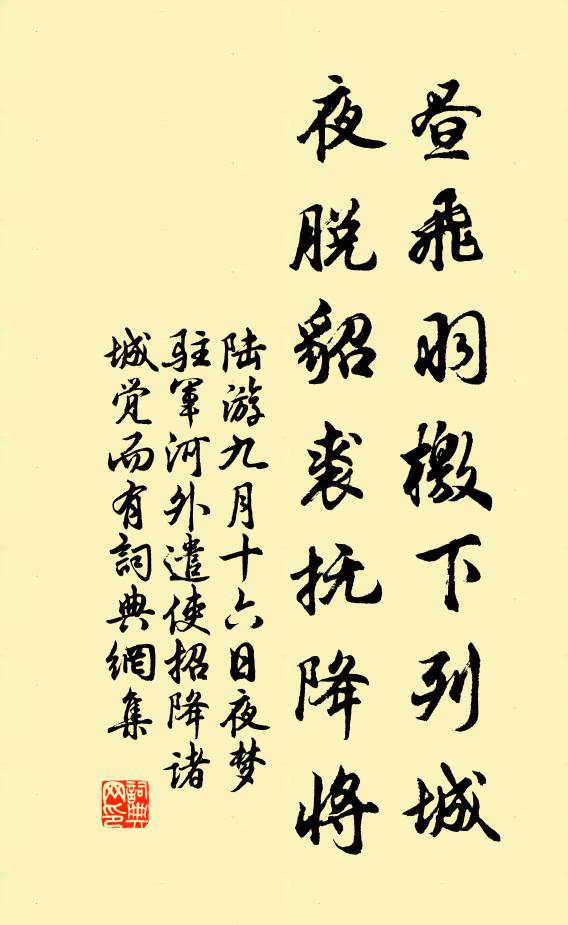 昼飛羽檄下列城
夜脱貂裘抚降将
陆游九月十六日夜梦
驻軍河外遣使招降诸
城觉而有詞典網集
詞典
网印